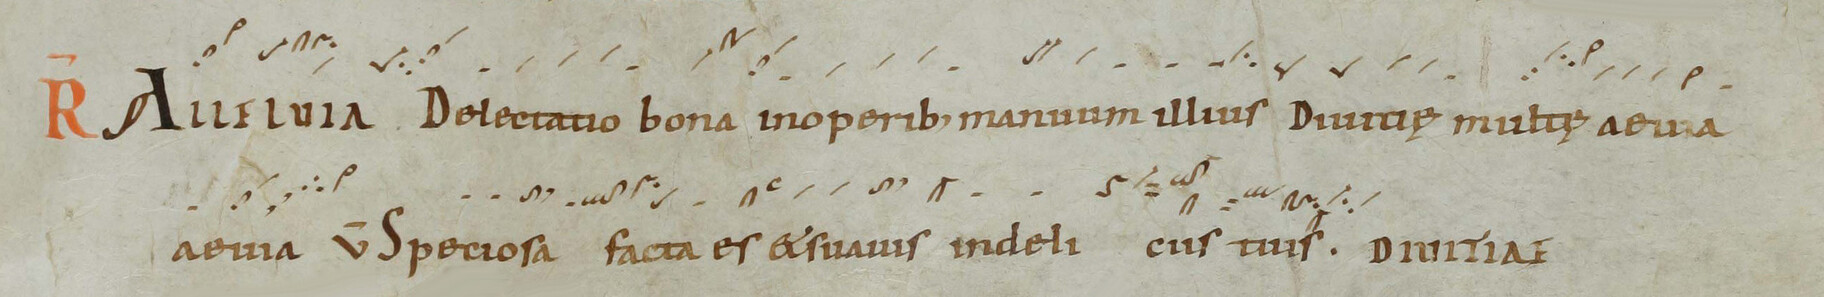 R̄ Alleluia Delectatio bona inoperib; manuum illius Diuitię multę aeuia
aeuia v̄ Speciosa facta es &suauis indeli ciis tuis. DIUITIAE